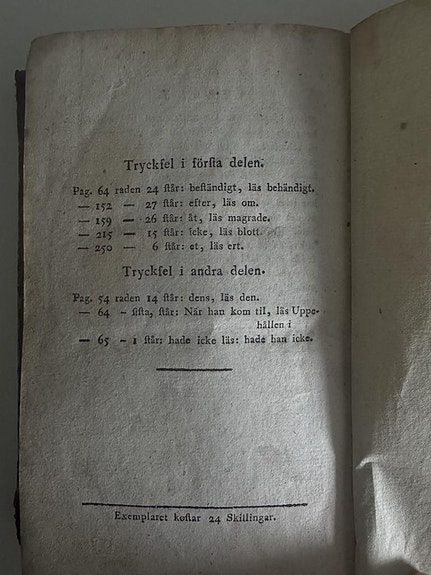 Tryckfel i förſta delen.
Pag. 64 raden 24 ſtår: beſtändigt, läs behändigt.
— 152 — 27 ſtår: efter, läs om.
— 159 — 26 ſtår: åt, läs magrade.
— 215 — 15 ſtår: icke, läs blott.
— 250 — 6 ſtår: et, läs ert.
Tryckfel i andra delen.
Pag. 54 raden 14 ſtår: dens, läs den.
— 64 - ſiſta, ſtår: När han kom til, läs Uppe-
hällen i
— 65 - 1 ſtår: hade icke läs: hade han icke.
Exemplaret koſtar 24 Skillingar.